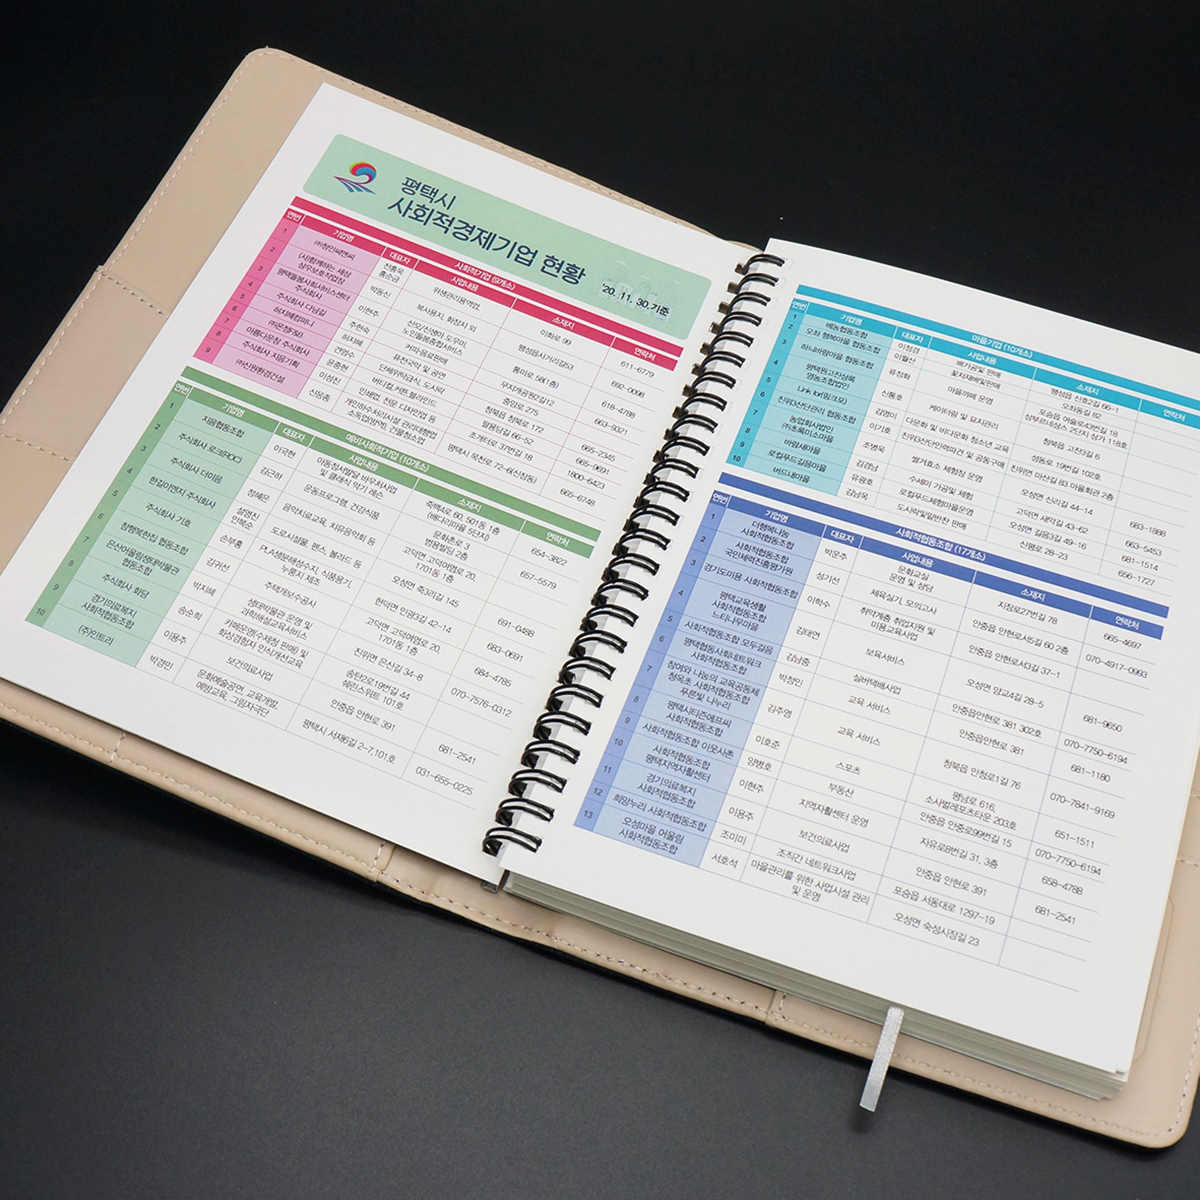 평택시
사회적경제기업 현황
'20. 11. 30.기준
사회적기업 (9개소)
연번 기업명 대표자 사업내용 소재지 연락처
1 ㈜청인씨앤씨 진홍욱 위생관리용역업 이화로 99 611-6779
2 (사)함께하는 세상 홍순금 복사용지, 화장지 외 692-0098
3 평택돌봄사회서비스센터 박동신 산모/신생아 도우미, 노인돌봄종합서비스 통미로 58(1층) 618-4798
4 주식회사 다님길 이현주
5 주현숙 유천국악 및 공연 중앙로 275
6 허지혜
7 아름다운청 주식회사 청북읍 청북로 172 665-2345
8 주식회사 지음기획 윤중현 인쇄업, 전문 디자인업 등 665-9691
9 ㈜신원환경건설 1800-6423
665-6748
예비사회적기업 (10개소)
연번 기업명 대표자 사업내용 소재지 연락처
1 지음협동조합 이국현 아동정서발달 바우처사업 및 클래식 악기 레슨 죽백4로 60, 501동 1층 (배다리마을 5단지) 654-3822
2 주식회사 로크(ROC) 김근하 운동프로그램, 건강식품 문화촌로 3 범용빌딩 2층 657-5579
3 주식회사 다이음 정혜은 음악치료교육, 치유음악회 등 고덕면 고덕여염로 20, 1701동 1층
4 한길이엔지 주식회사 도로시설물, 펜스, 볼라드 등 오성면 죽3리길 145 691-0488
5 주식회사 기호 손부홍 PLA생분해성수지, 식품용기, 누룽지 제조
6 참행복한집 협동조합 김귀선 주택개보수공사 고덕면 고덕여염로 20, 1701동 1층 683-0691
7 은산어울림생태박물관 협동조합 박지혜 생태박물관 운영 및 과학해설교육서비스 진위면 은산길 34-8 684-4785
8 주식회사 화담 송순희 카페운영(수제청 판매) 및 화상경험자 인식개선교육 송탄2로19번길 44 웨린스위트 101호 070-7576-0312
9 경기의료복지 사회적협동조합 이용주 보건의료사업 안중읍 안현로 391 681-2541
10 (주)인트리 박경민 문화예술공연, 교육개발, 예방교육, 그림자극단 평택시 서재6길 2-7,101호 031-655-0225
마을기업 (10개소)
연번 기업명 대표자 사업내용 소재지 연락처
1 배농협동조합 이정경 배가공및 판매 팽성읍 신호2길 66-1
2 오좌 행복마을 협동조합 이월산 꽃차재배및판매 오좌동길 82
3 유정화 마을카페 운영
4 신용호 케이터링 및 요리관리 청북읍 고잔3길 6
5 Link for(링크포) 김영미 다문화 및 비다문화 청소년 교육 성동로 19번길 102호
6 친위3산단관리 협동조합 이기호 진위면 마산길 83 마을회관 2층
7 농업회사법인 ㈜초록미소마을 조병욱 쌀겨효소 체험장 운영 오성면 신리길 44-14 683-1888
8 바람새마을 김경남 수세미 가공및 체험 고덕면 새악길 43-62 663-5453
9 로컬푸드길음마을 유광호 로컬푸드체험마을운영 오성면 길음3길 49-16 681-1514
10 버드내마을 김남옥 도시락및밑반찬 판매 신평로 28-23 656-1727
사회적협동조합 (17개소)
연번 기업명 대표자 사업내용 소재지 연락처
1 더행복나눔 사회적협동조합 박운주 문화교실 운영 및 상담 지장로27번길 78 665-4697
2 사회적협동조합 국민체력진흥평가원 성기선 체육실기, 모의고사 안중읍 안현로서5길 60 2층 070-4917-0993
3 경기도미용 사회적협동조합 이학수 취약계층 취업지원 및 미용교육사업 안중읍 안현로서3길 37-1
4 평택교육생활 사회적협동조합 느티나무마을 김태연 보육서비스 오성면 양교4길 28-5 681-9650
5 사회적협동조합 모두걸음 김남중 실버택배사업 안중읍안현로 381 302호 070-7750-6194
6 평택협동사회네트워크 사회적협동조합 박정인 교육 서비스 안중읍안현로 381 681-1180
7 참여와 나눔의 교육공동체 청옥초 사회적협동조합 푸른빛 나누리 김주영 교육 서비스 청북읍 안청로1길 76 070-7841-9169
8 평택시티즌에프씨 사회적협동조합 이호준 스포츠 평남로 616, 소사벌레포츠타운 203호 651-1511
9 사회적협동조합 이웃사촌 양병호 부동산 안중읍 안중로99번길 15 070-7750-6194
10 사회적협동조합 평택지역자활센터 이현주 지역자활센터 운영 자유로8번길 31, 3층 658-4788
11 경기의료복지 사회적협동조합 이용주 보건의료사업 안중읍 안현로 391 681-2541
12 희망누리 사회적협동조합 조미미 조직간 네트워크사업 포승읍 서동대로 1297-19
13 오성마을 어울림 사회적협동조합 서호석 마을관리를 위한 사업시설 관리 및 운영 오성면 숙성시장길 23